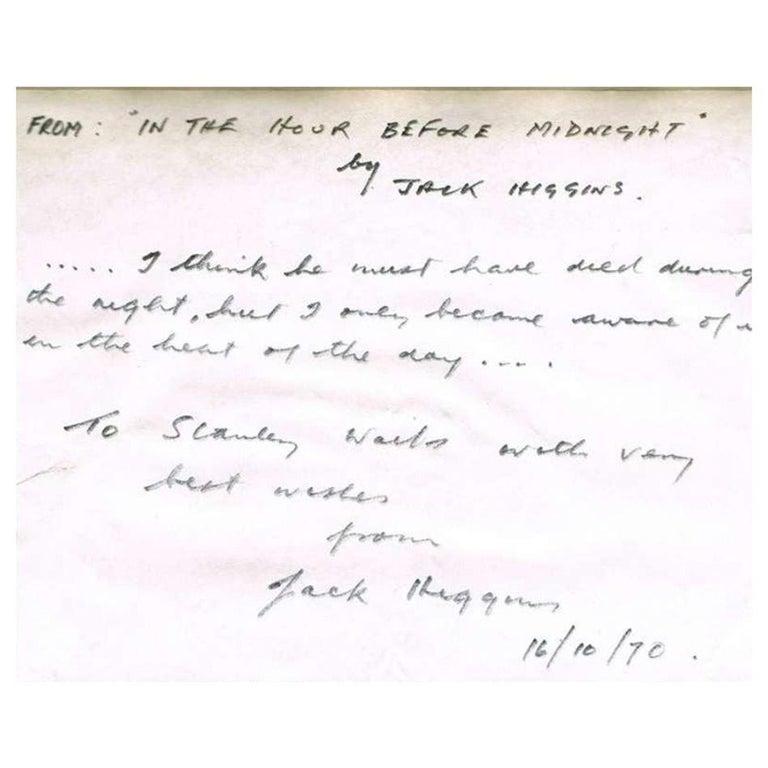 FROM: "IN THE HOUR BEFORE MIDNIGHT"
by
JACK HIGGINS.
..... I think he must have died during
the night, but I only became aware of i
in the heat of the day ....
To Stanley with very
best wishes
from
Jack Higgins
16/10/70.